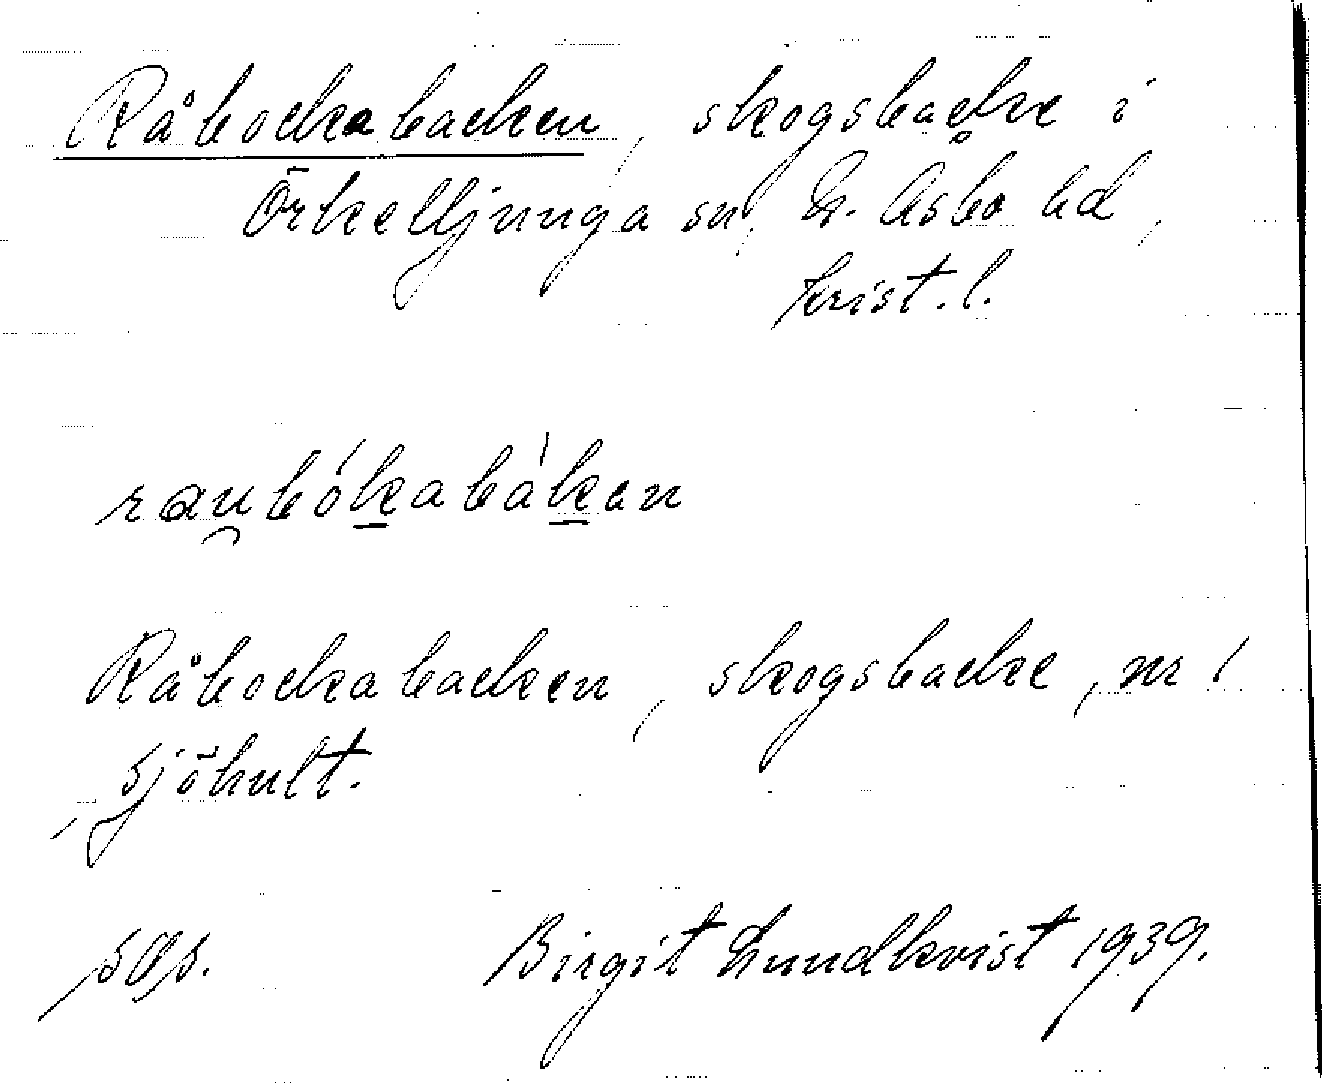 Råbockabacken, skogsbacke i
Örkelljunga sn, N. Åsbo hd,
Krist. l.
rau̯bók̠abàk̠en
Råbockabacken, skogsbacke, nr 1
Sjöhult.
SOs. Birgit Lundkvist 1939.